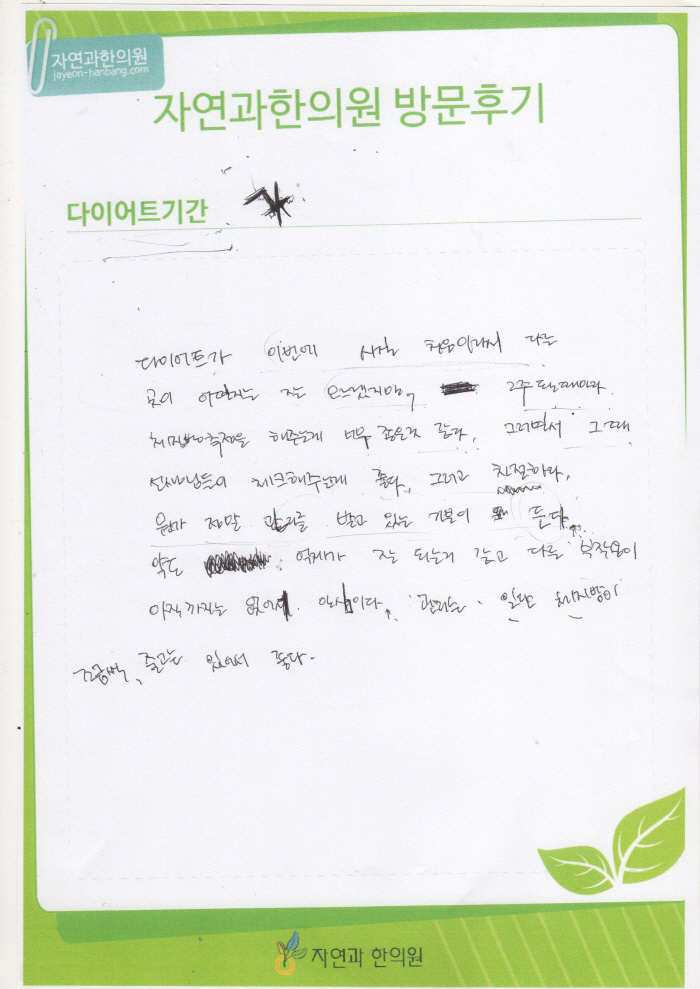 자연과한의원
jayeon-hanbang.com
자연과한의원 방문후기
다이어트기간
다이어트가 이번에 사실 처음이라서 다른
곳이 어떤지는 잘 모르겠지만, 2주 되는데이다
체지방측정을 해주는게 너무 좋은것 같다, 그러면서 그때
선생님들이 체크해주는데 좋다, 그리고 친절하다,
뭔가 정말 관리를 받고 있는 기분이 든다,
약도 억제가 잘 되는거 같고 다른 부작용이
아직까지는 없어서 안심이다, 관리는 일단 체지방이
조금씩, 줄고는 있어서 좋다.
자연과 한의원